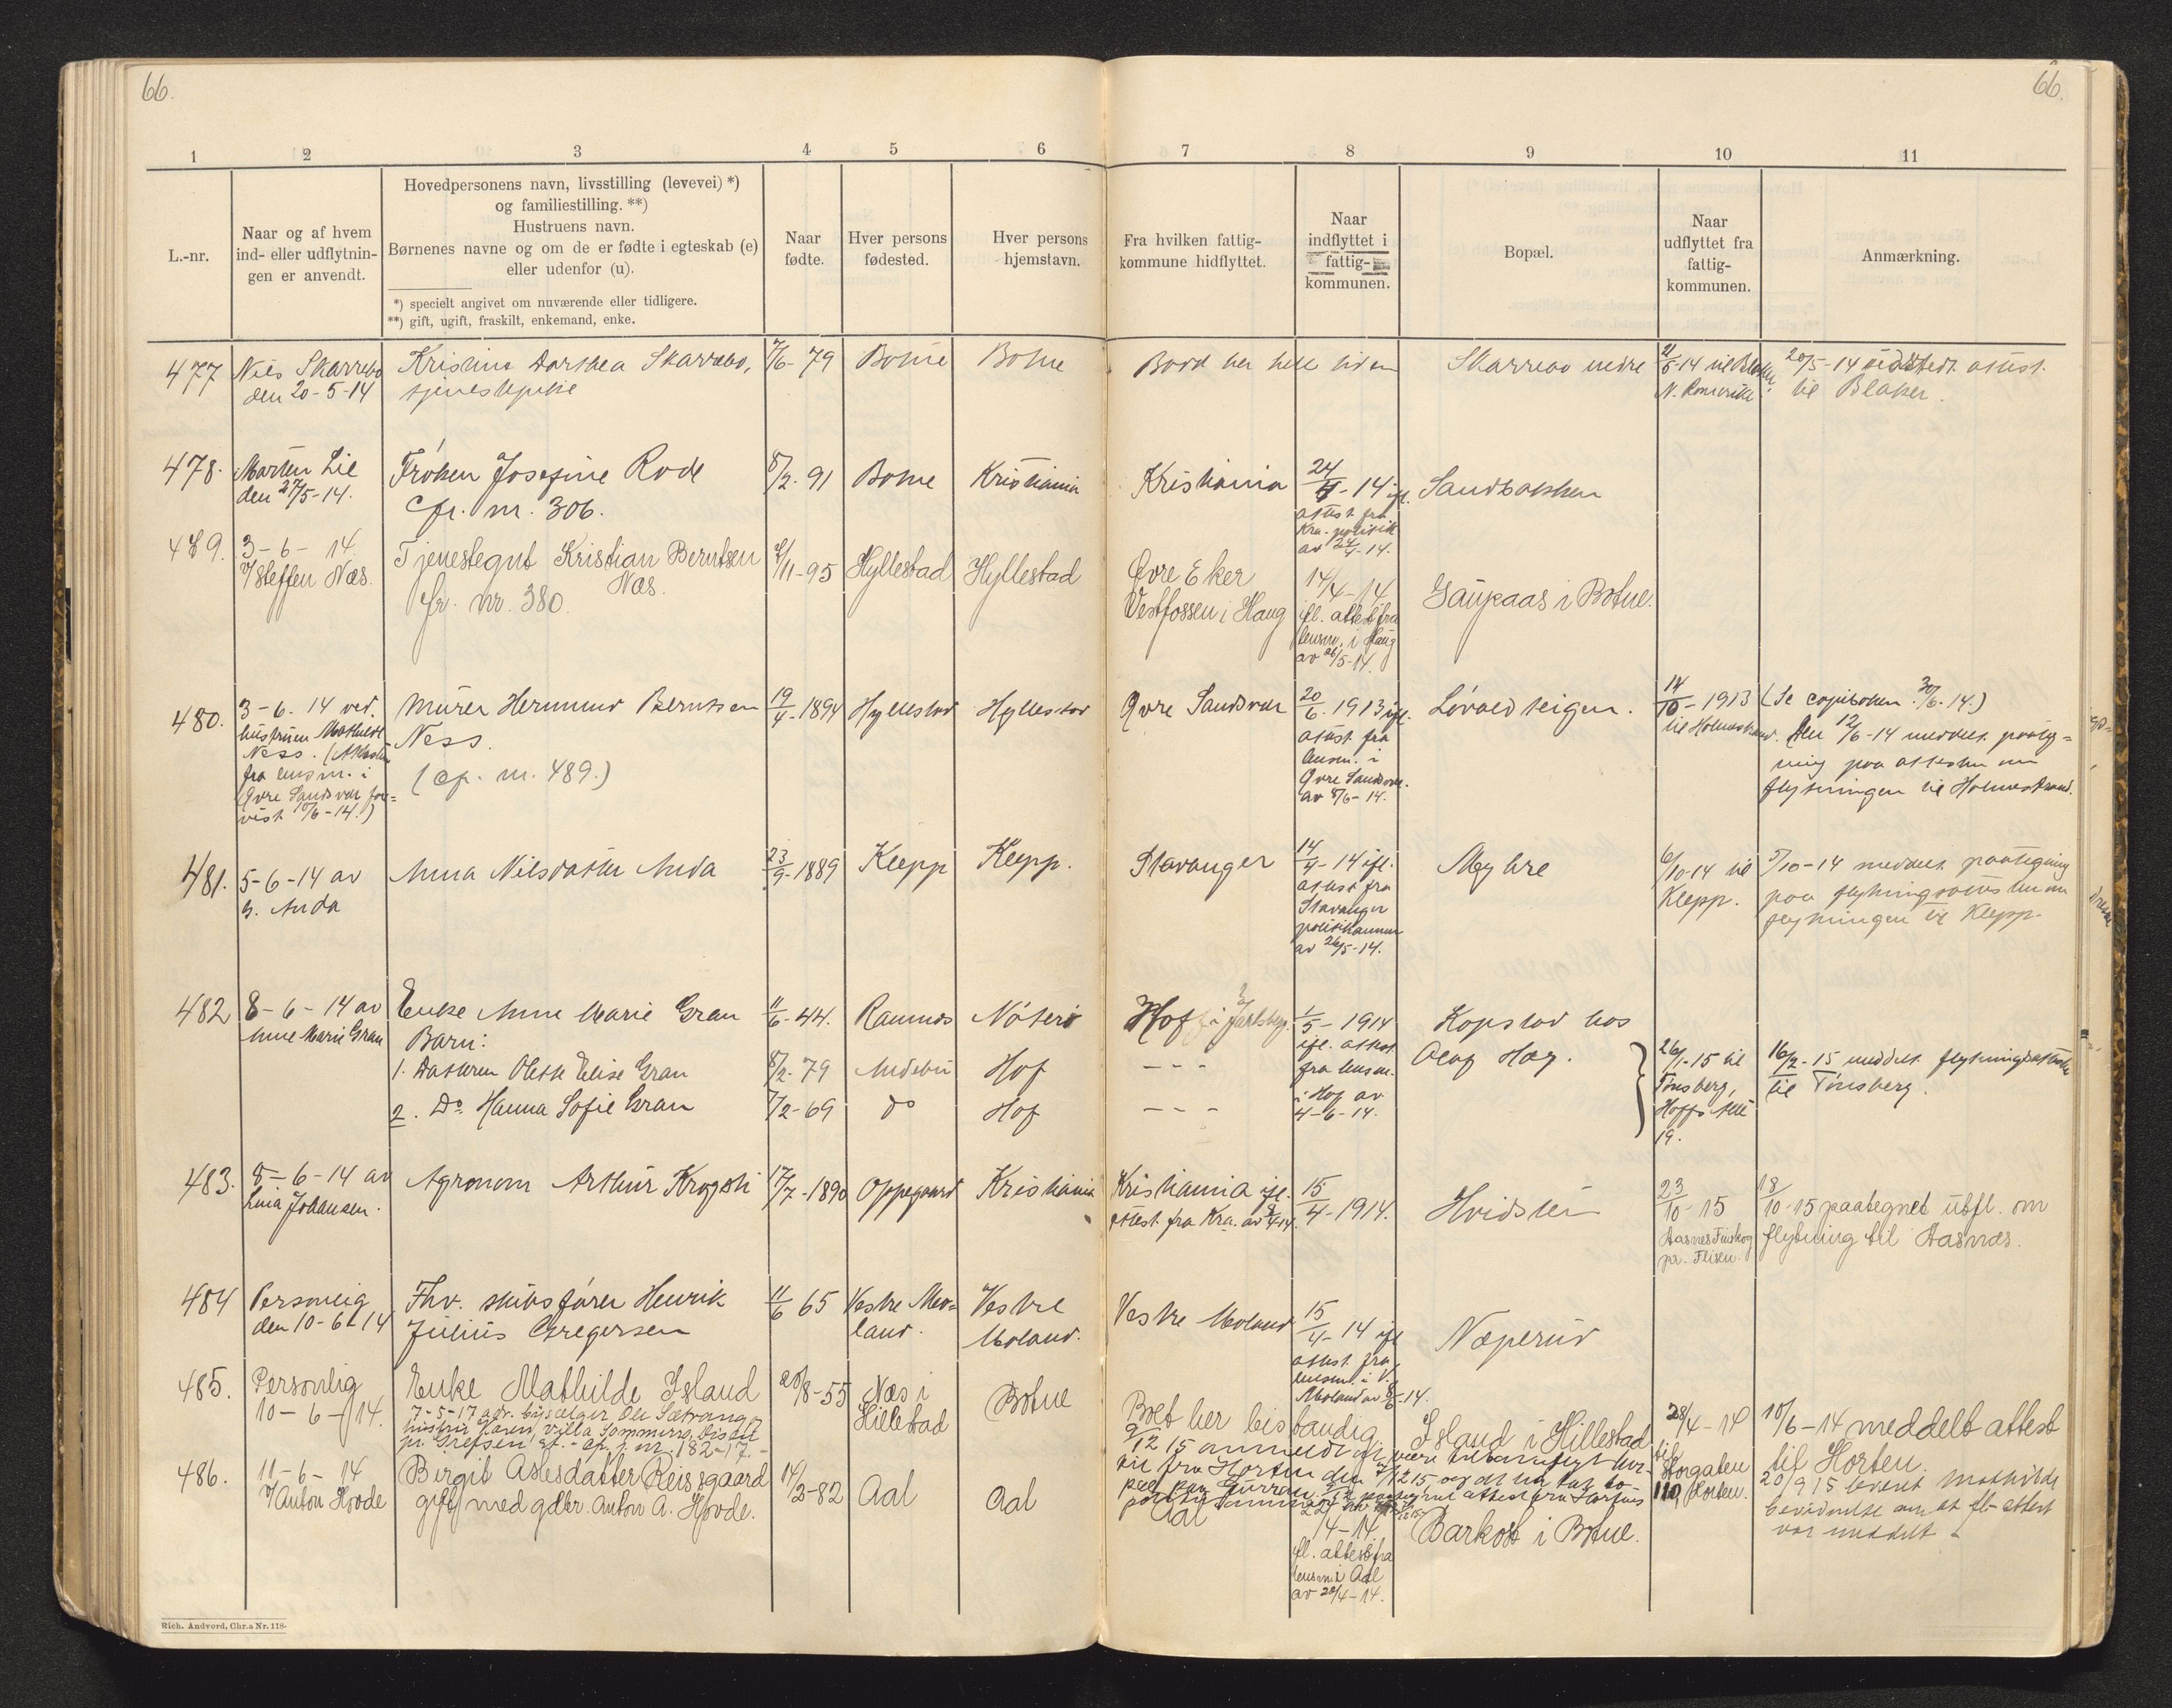 66.
66.
1 2 3 4 5 6 7 8 9 10 11
L.-nr.
Naar og af hvem
ind- eller udflytnin-
gen er anvendt.
Hovedpersonens navn, livsstilling (levevei) *)
og familiestilling. **)
Hustruens navn.
Børnenes navne og om de er fødte i egteskab (e)
eller udenfor (u).
*) specielt angivet om nuværende eller tidligere.
**) gift, ugift, fraskilt, enkemand, enke.
Naar
fødte.
Hver persons
fødested.
Hver persons
hjemstavn.
Fra hvilken fattig-
kommune hidflyttet.
Naar
indflyttet i
fattig-
kommunen.
Bopæl.
Naar
udflyttet fra
fattig-
kommunen.
Anmærkning.
477
Nils Skarrebo
den 20-5-14
Kristine Dorthea Skarrebo,
tjenestepike
7/6-79
Botne
Botne
Bodd her hele tiden
Skarrebo nedre
2/5-14 til Blaker
N. Romerike
20/5-14 utstedt attest
til Blaker.
478.
Marten Lie
den 27/5-14.
Frøken Josefine Rode
Cfr. nr. 306.
8/2-91
Botne
Kristiania
Kristiania
24/4-14 ifl.
attest fra
Kra. politik
av 24/4-14.
Sandbakken
479.
3-6-14.
v/ Steffen Næs.
Tjenestegut Kristian Berntsen
Næs.
cfr. nr. 380.
2/11-95
Hyllestad
Hyllestad
Øvre Eker
Vestfossen i Haug
14/4-14
ifl. attest fra
lensm. i Haug
av 26/5-14.
Gaupaas i Botne.
480.
3-6-14 ved.
hustruen Mathilde
Ness. (Attesten
fra lensm. i
Øvre Sandsvær fore=
vist 10/6-14.)
Murer Hermund Berntsen
Ness.
(cp. nr. 489.)
19/4-1894
Hyllestad
Hyllestad
Øvre Sandsvær
20/6-1913 ifl.
attest fra
lensm. i
Øvre Sandsvær.
av 8/6-14.
Løvaldteigen.
14/10-1913
til Holmestrand.
(Se copiboken 30/6-14.)
Den 12/6-14 meddelt paateg=
ning paa attesten om
flytningen til Holmestrand.
481.
5-6-14 av
G. Anda
Anna Nilsdatter Anda
23/9-1889
Klepp
Klepp.
Stavanger
14/4-14 ifl.
attest fra
Stavanger
politikammer
av 26/5-14.
Myhre
6/10-14 til
Klepp.
5/10-14 meddelt paategning
paa flytningsattesten om
flytningen til Klepp.
482
8-6-14 av
Anne Marie Gran
Enke Anne Marie Gran
Barn:
1. Datteren Olette Elise Gran
2. Do. Hanna Sofie Gran
11/6-44.
8/2-79
7/2-69
Ramnes
Andebu
do
Nøterø
Hof
Hof
Hof i Jarlsberg.
- - -
- - -
1/5-1914
ifl. attest
fra lensm.
i Hof av
4-6-14.
Kopstad hos
Olaf Hag.
26/1-15 til
Tønsberg,
19.
16/2-15 meddelt flytningsattest
til Tønsberg.
483.
8-6-14 av
Lina Johansen.
Agronom Arthur Krogsti
17/7-1890
Oppegaard
Kristiania
Kristiania ifl.
attest fra Kra. av
15/4-1914.
Hvidstein
23/10-15
Aasnes Finskog
pr. Flisen.
18/10-15 paategnet utfl. om
flytning til Aasnæs.
484
Personlig
den 10-6-14
Fhv. skibsfører Henrik
Julius Gregersen
11/6 65
Vestre Mo=
land.
Vestre
Moland.
Vestre Moland
15/4-14 ifl
attest fra
lensm. i V.
Moland av 8/6-14.
Næperud
485.
Personlig
10-6-14.
Enke Mathilde Island
7-5-17 adr.
hustru Karen, villa Sommerro, Disen
pr. Grefsen st. - cp. j. nr. 182-17.-
20/8-55
Næs i
Hillestad
Botne
Boet her bistandig.
Island i Hillestad
28/4-14
til
Storgaten
110 Horten.
10/6-14 meddelt attest
til Horten.
20/9 15 levert Mathilde
bevidnelse om at fl-attest
var meddelt.
486.
11-6-14
v/ Anton Hovde
Birgit Aslesdatter Reissgaard
gift med gdbr. Anton A. Hovde.
14/2-82
Aal
Aal
Aal
22/4-14
ifl. attest fra
lensm. i Aal
av 28/4-14.
Barkost i Botne.
Rich. Andvord, Chr.a Nr. 118.